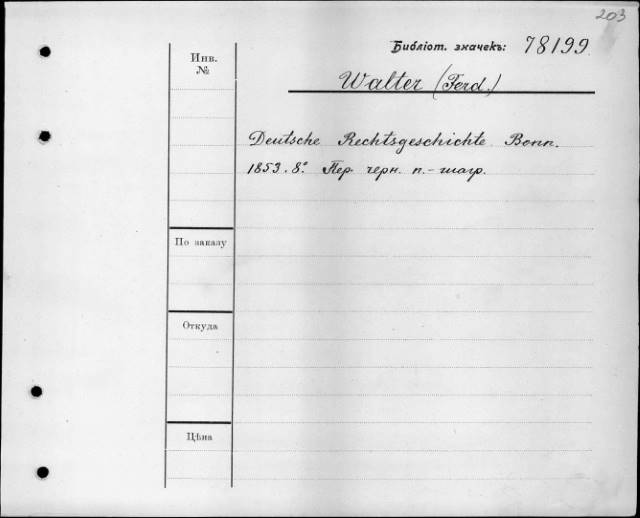 203
Библіот. значекъ: 78199
Инв.
№
Walter (Ferd.)
Deutsche Rechtsgeschichte Bonn.
1853. 8° Пер. черн. п.-шагр.
По заказу
Откуда
Цѣна